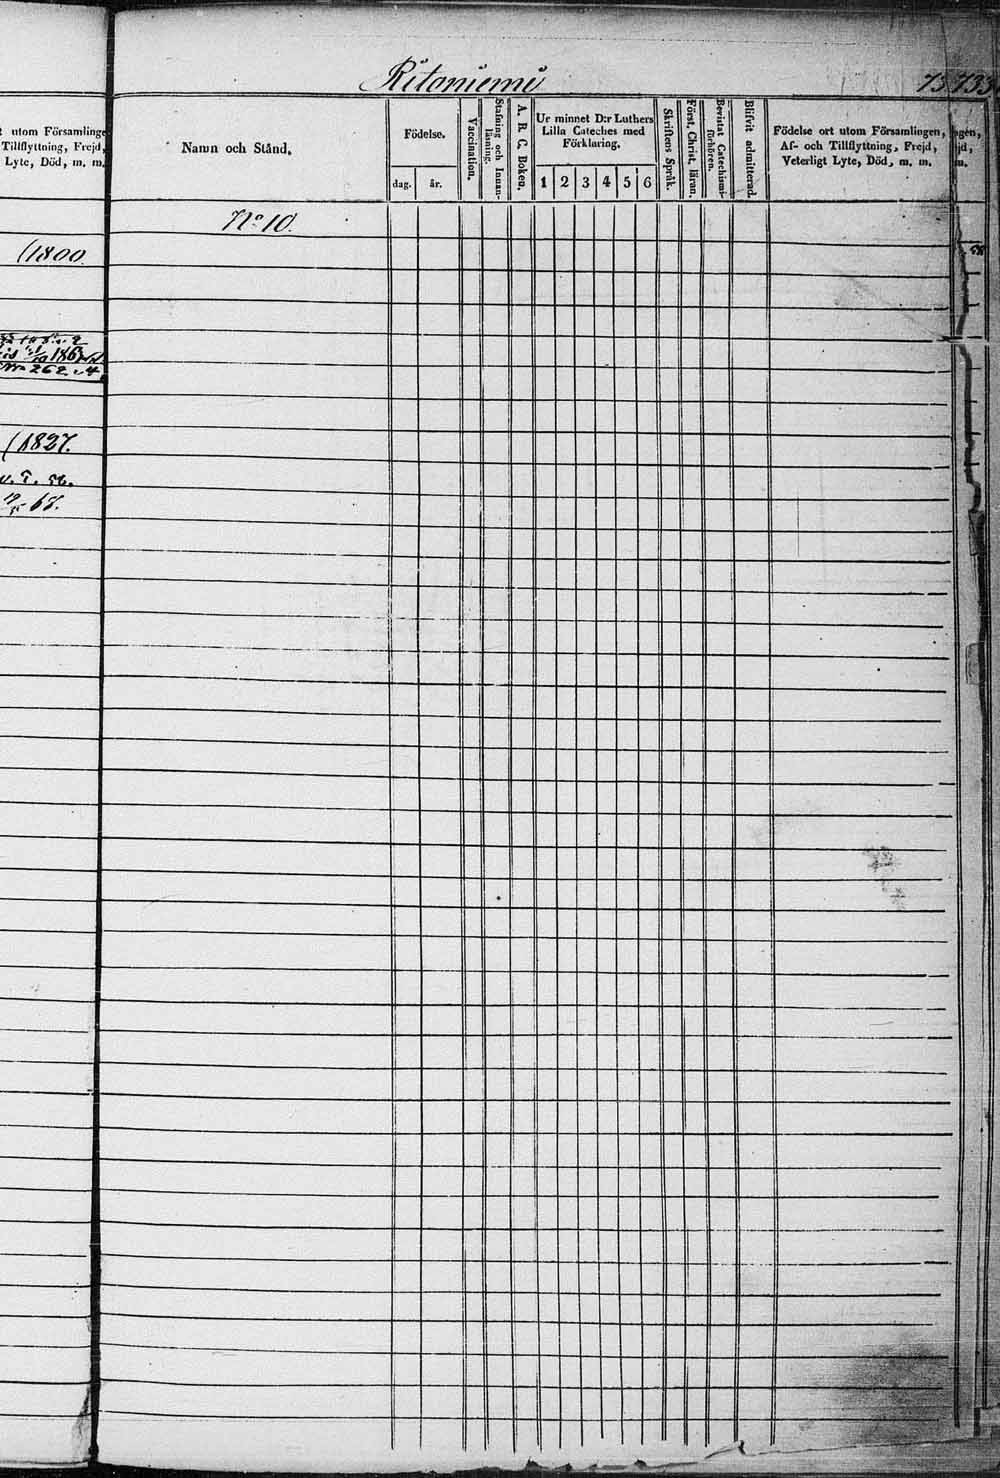 Ritoniemi
733
t utom Församlinge
Tillflyttning, Frejd,
Lyte, Död, m. m.
Namn och Stånd.
Födelse.
dag. år.
Vaccination.
Stafning och Innan-
läsning.
A. B. C. Boken.
Ur minnet D:r Luthers
Lilla Cateches med
Förklaring.
1 2 3 4 5 6
Skriftens Språk.
Först. Christ. läran.
Bevistat Catechismi-
förhören.
Blifvit admitterad.
Födelse ort utom Församlingen,
Af- och Tillflyttning, Frejd,
Veterligt Lyte, Död, m. m.
ngen,
jd,
m.
No 10.
(1800
58
262
(1827.